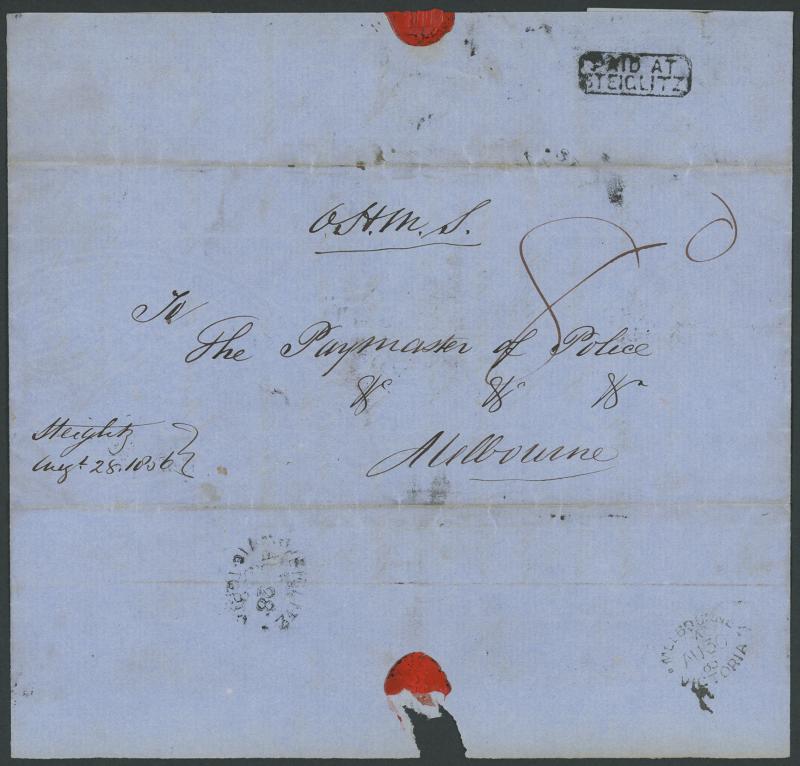 PAID AT
STEIGLITZ
O.H.M.S.
8 d
To
The Paymaster of Police
&c &c &c
Melbourne
Steiglitz
Augt 28. 1856
MELBOURNE